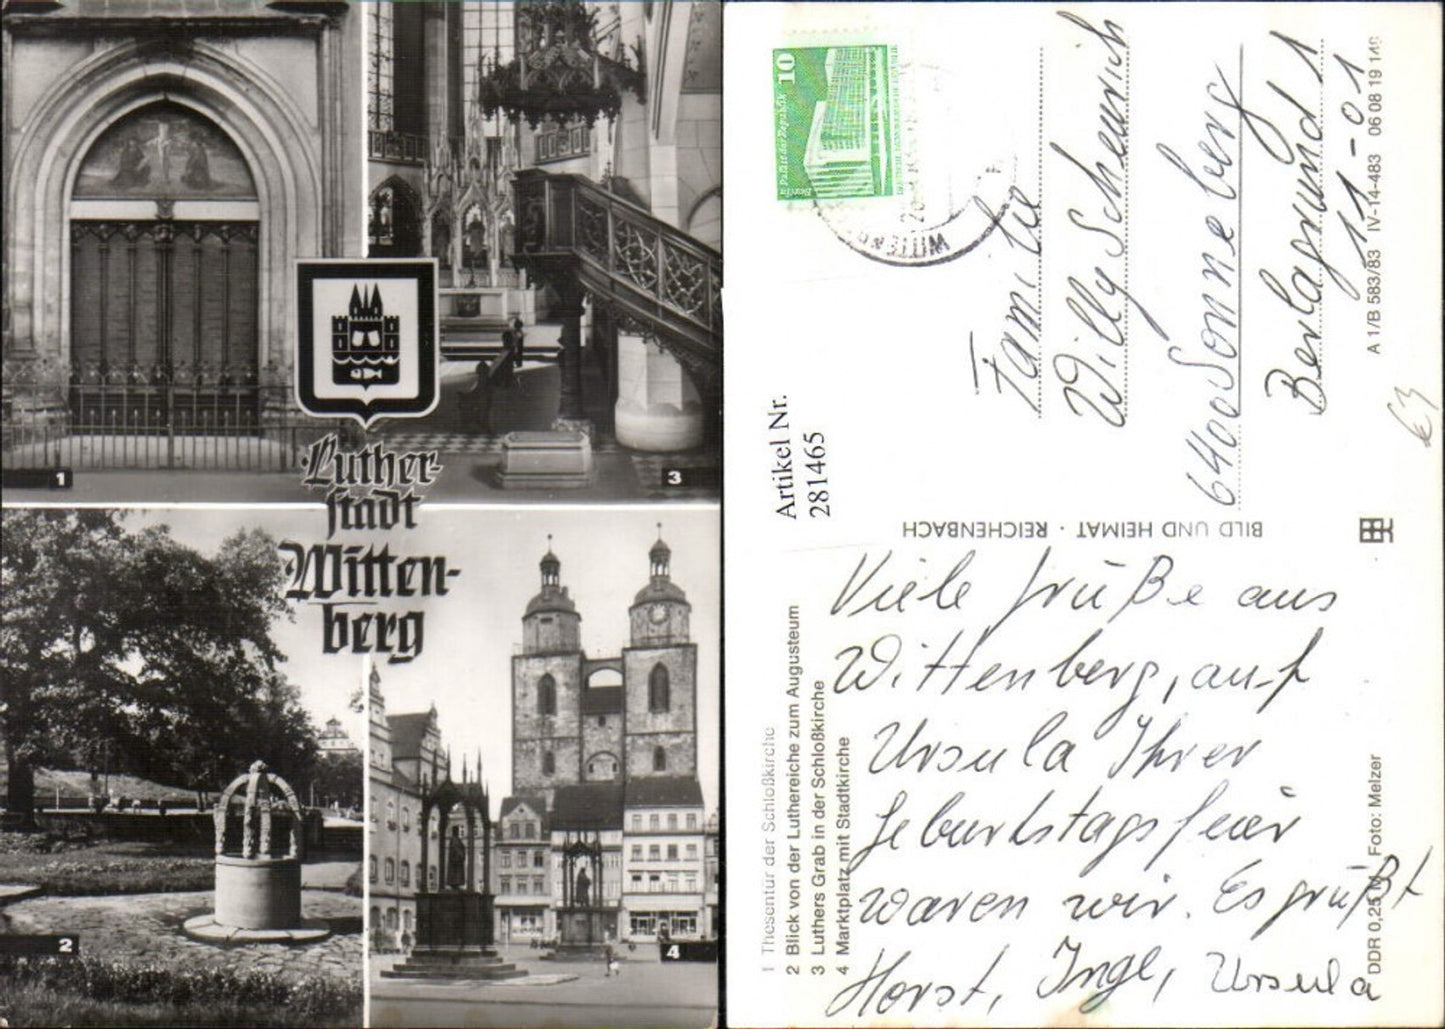 1
3
Luther-
stadt
Witten-
berg
2
4
10
Palast der Republik
Berlin
WITTENB
Artikel Nr.
281465
Familie
Willy Scheurich
6400 Sonneberg
11-01
A 1/B 583/83 IV-14-483 06 08 19 140
€3
BILD UND HEIMAT · REICHENBACH
1 Thesentür der Schloßkirche
2 Blick von der Luthereiche zum Augusteum
3 Luthers Grab in der Schloßkirche
4 Marktplatz mit Stadtkirche
Viele Grüße aus
Wittenberg, auf
Ursula Ihrer
Geburtstagsfeier
waren wir. Es grüßt
Horst, Inge, Ursula
DDR 0,25 M Foto: Melzer